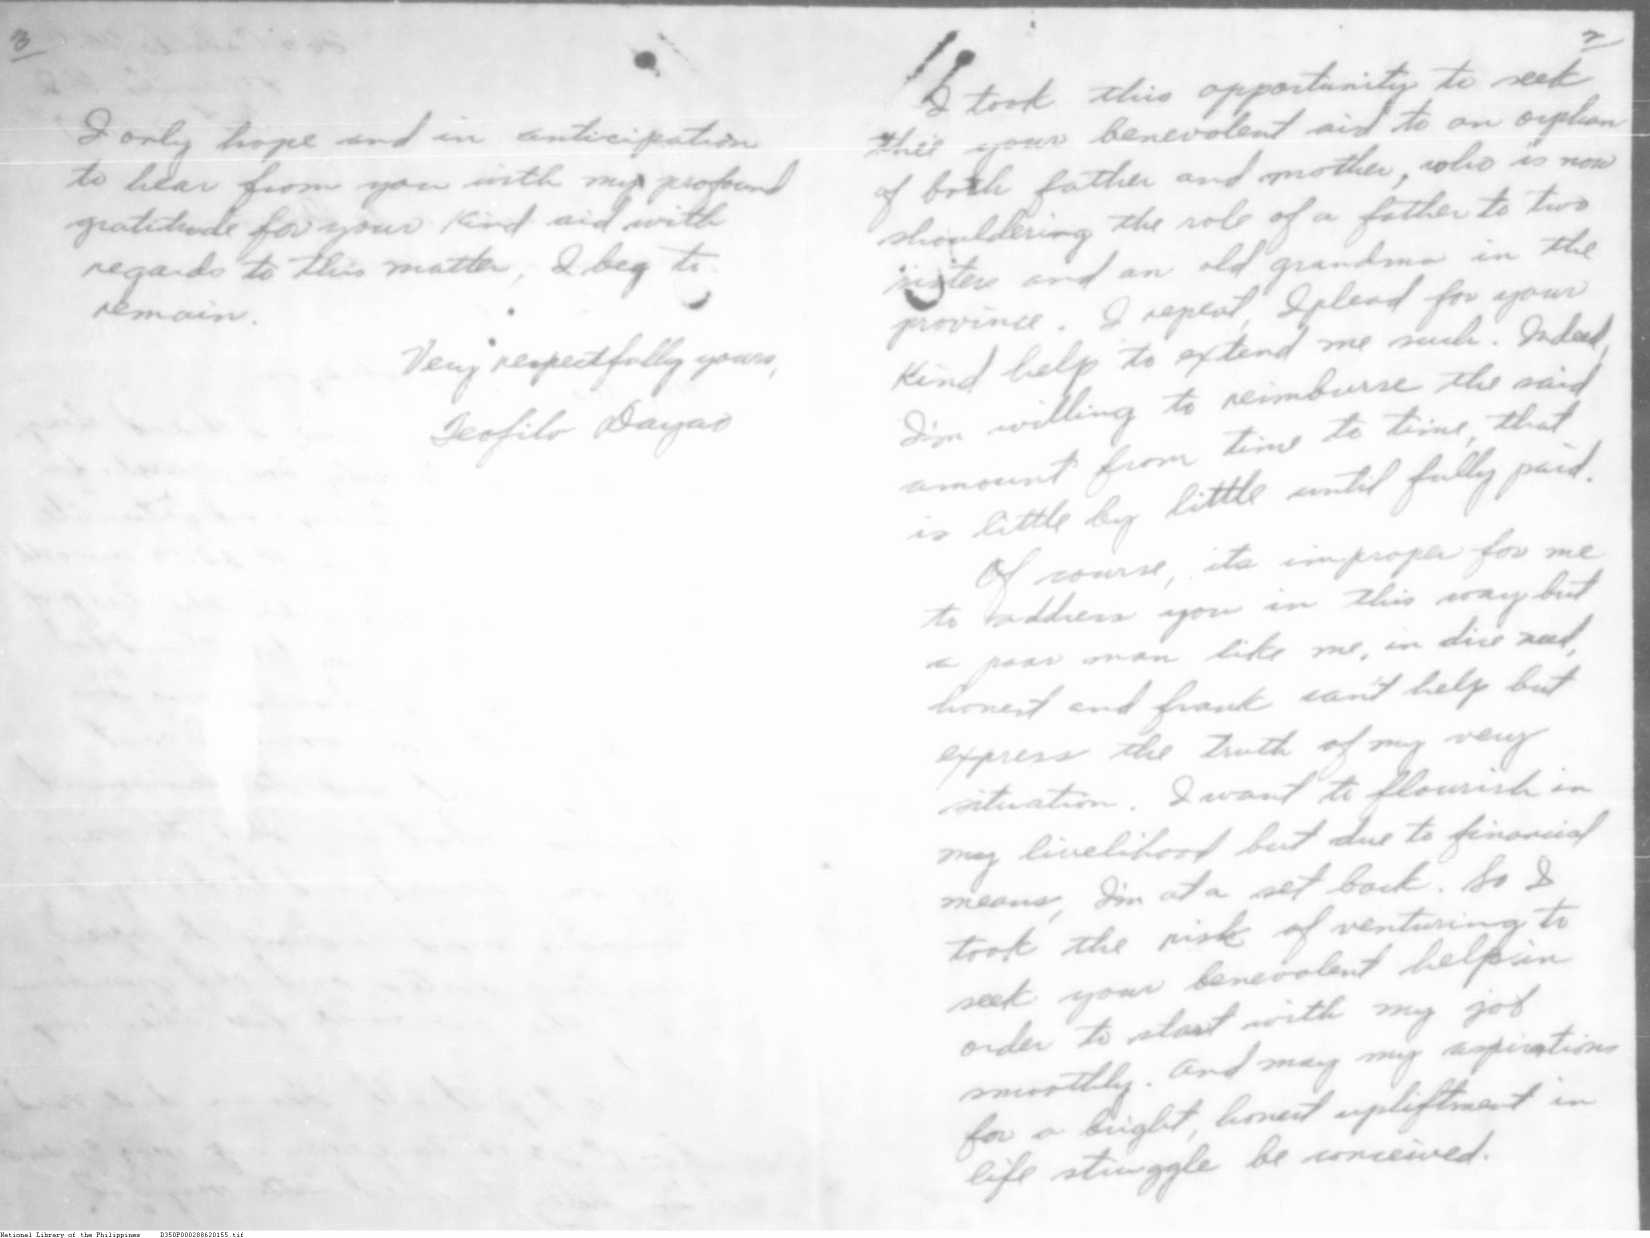 2
I took this opportunity to seek
thee your benevolent aid to an orphan
of both father and mother, who is now
shouldering the role of a father to two
sisters and an old grandma in the
province. I repeat, I plead for your
kind help to extend me such. Indeed,
I'm willing to reimburse the said
amount from time to time, that
is little by little until fully paid.
Of course, its improper for me
to address you in this way but
a poor man like me, in dire need,
honest and frank can't help but
express the truth of my very
situation. I want to flourish in
my livelihood but due to financial
means, I'm at a set back. So I
took the risk of venturing to
seek your benevolent help in
order to start with my job
smoothly. And may my aspirations
for a bright, honest upliftment in
life struggle be conceived.
3
I only hope and in anticipation
to hear from you with my profound
gratitude for your kind aid with
regards to this matter, I beg to
remain.
Very respectfully yours,
Teofilo Dayao
National Library of the Philippines D350P000288620155.tif